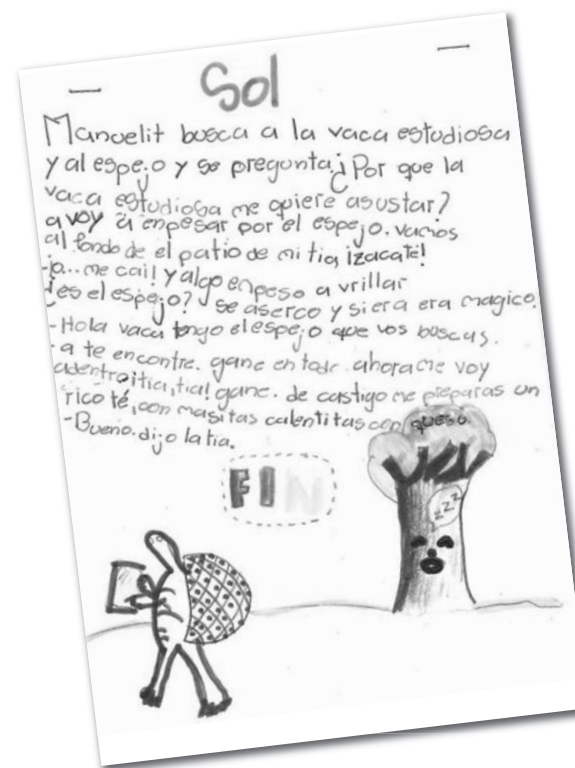 Sol
Manuelit busca a la vaca estudiosa
y al espejo y se pregunta ¿Por que la
vaca estudiosa me quiere asustar?
a voy a enpesar por el espejo. vamos
al fondo de el patio de mi tia, izacate!
-ja... me cai! y algo enpeso a vrillar
¿es el espejo? se aserco y si era era magico.
-Hola vaca tengo el espejo que vos buscas.
-a te encontre. gane en todo. ahora me voy
adentro itia, tia! gane. de castigo me preparas un
rico té, con masitas calentitas con queso.
-Bueno. dijo la tia.
FIN
zzz